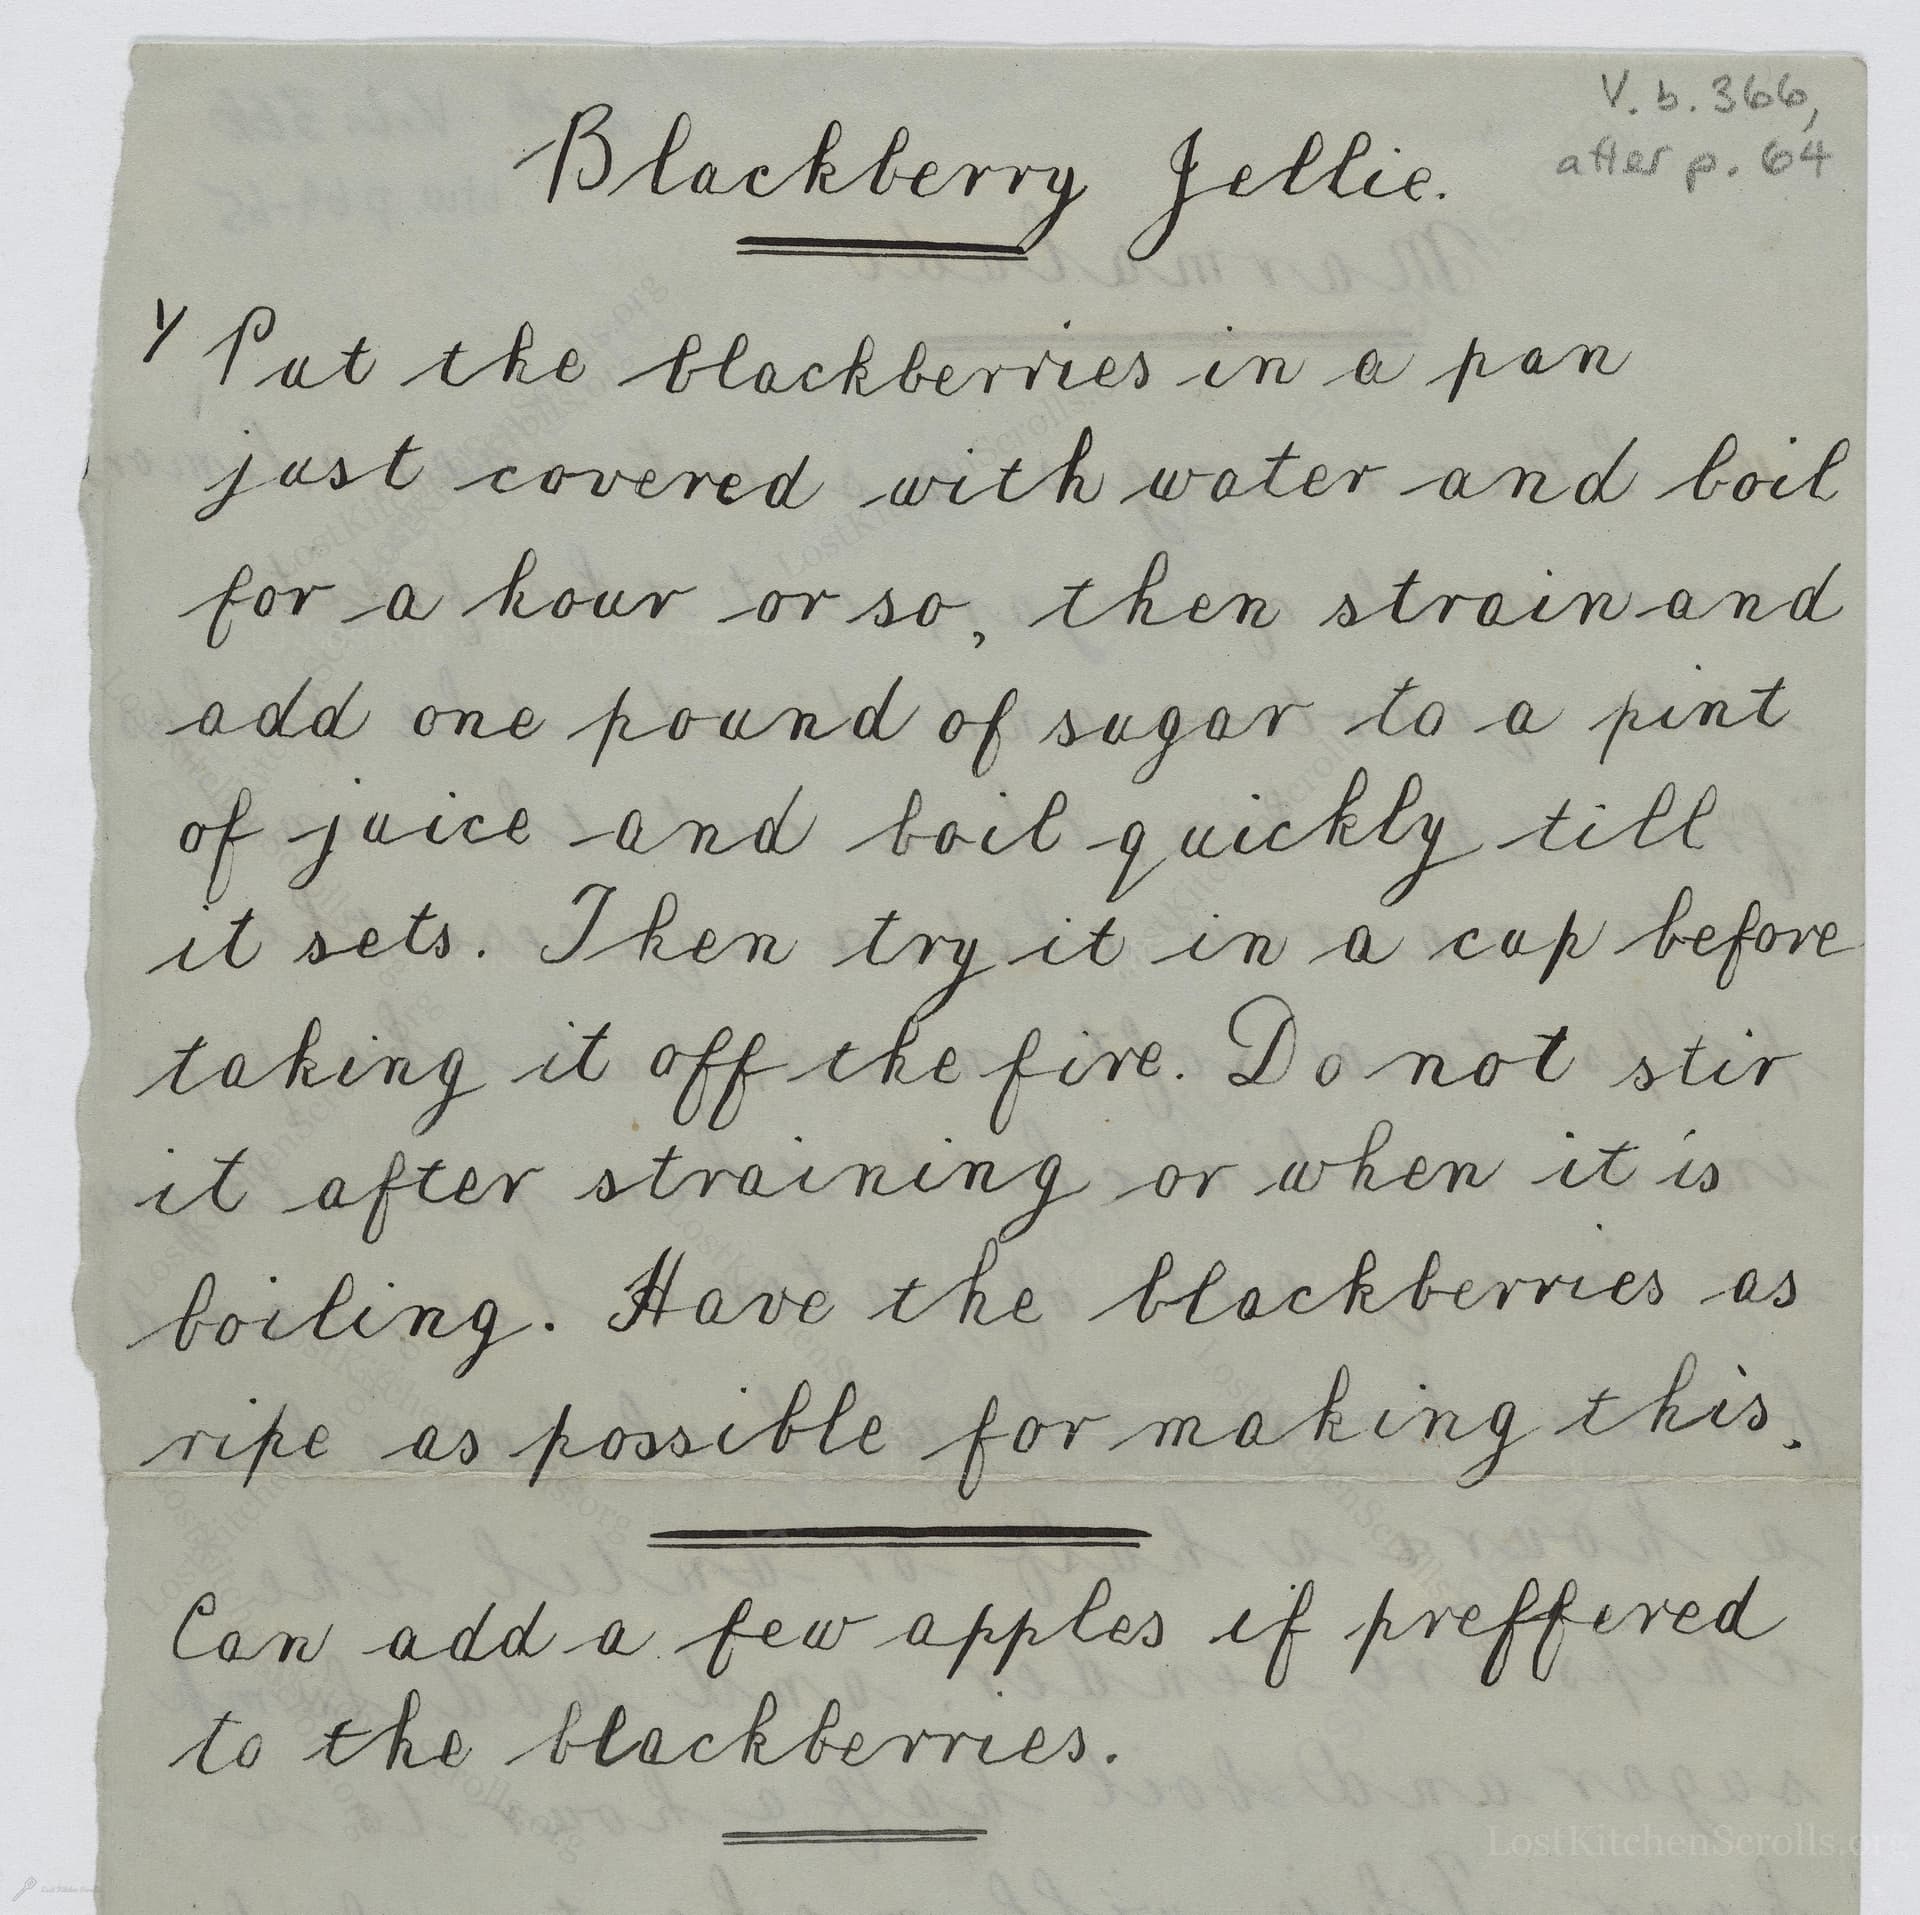 V. b. 366,
after p. 64
Blackberry Jellie.
Put the blackberries in a pan
just covered with water and boil
for a hour or so, then strain and
add one pound of sugar to a pint
of juice and boil quickly till
it sets. Then try it in a cup before
taking it off the fire. Do not stir
it after straining or when it is
boiling. Have the blackberries as
ripe as possible for making this.
Can add a few apples if preffered
to the blackberries.
LostKitchenScrolls.org